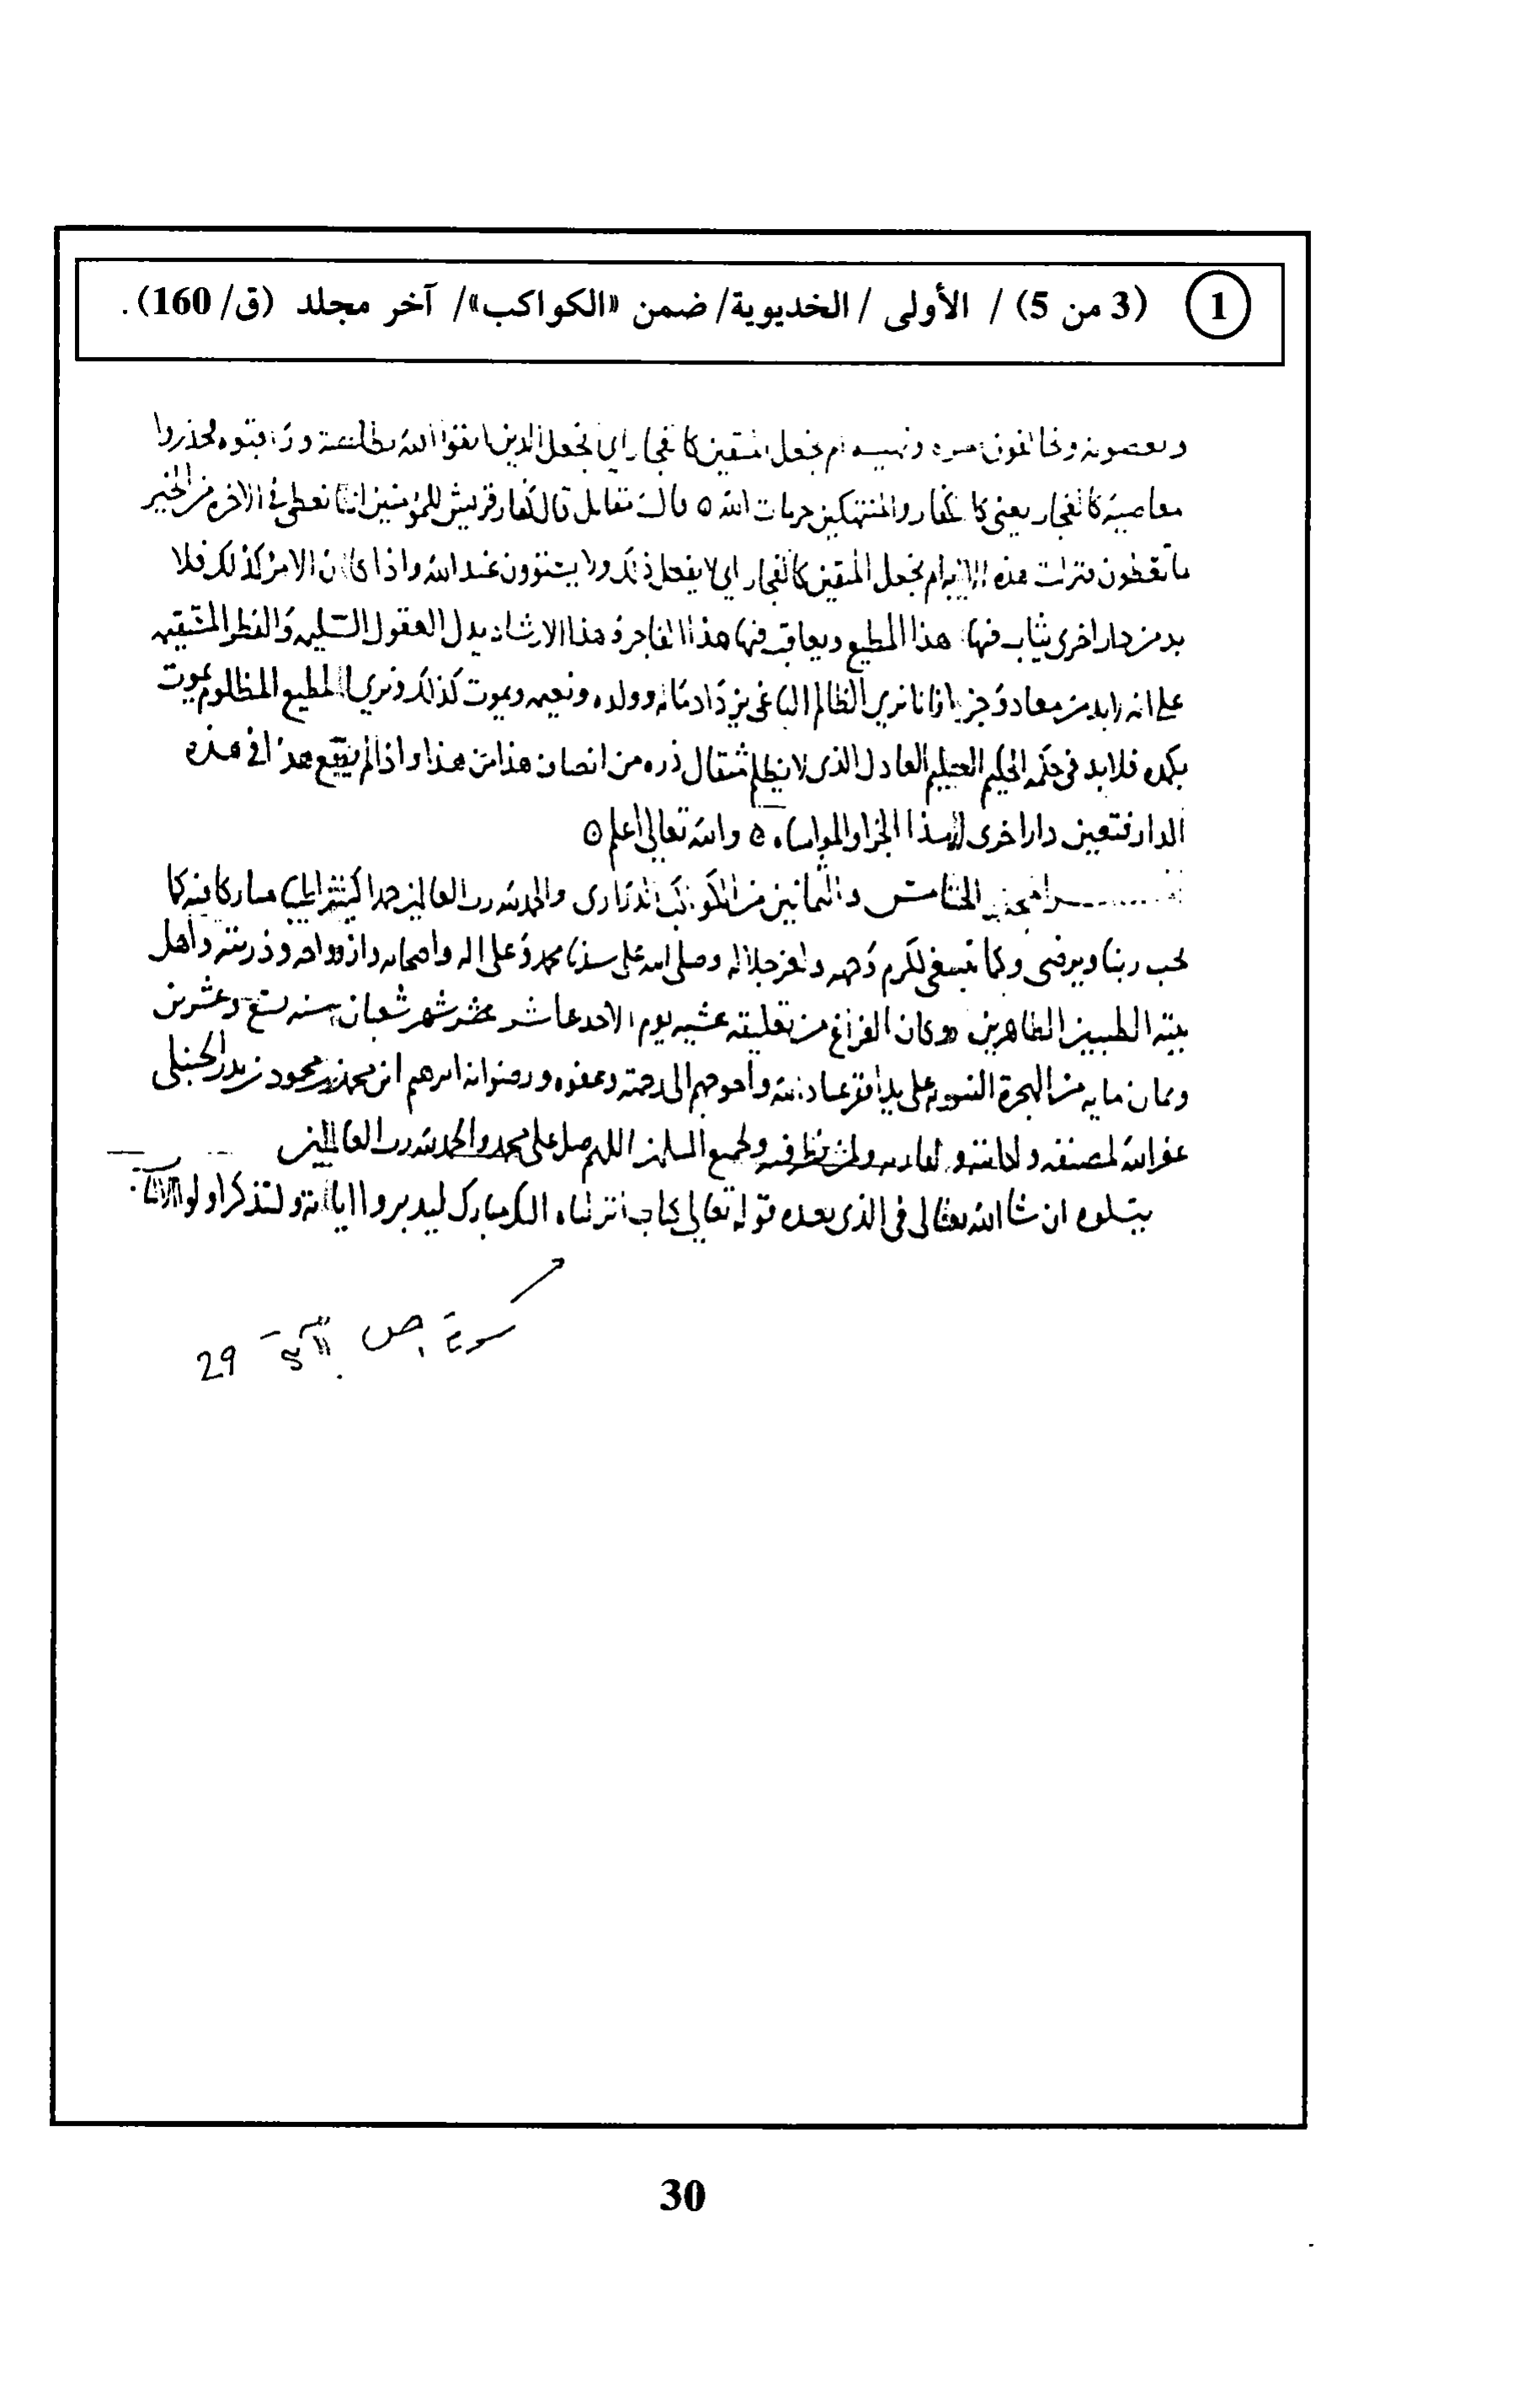 1 (3 من 5) / الأولى / الخديوية/ ضمن «الكواكب»/ آخر مجلد (ق/ 160).
ويعصونه ويخالفون امره ونهيه ام نجعل المتقين كالفجار اي انجعل الذين اتقوا الله بطاعته وراقبوه فحذروا
معاصيه كالفجار يعني كالكفار والمنتهكين حرمات الله ٥ قال مقاتل قال كفار قريش للمؤمنين انا نعطى في الاخره من الخير
ما تعطون فنزلت هذه الايه ام نجعل المتقين كالفجار اي لا يفعل ذلك ولا يستوون عند الله واذا كان الامر كذلك فلا
بد من دار اخرى يثاب فيها هذا المطيع ويعاقب فيها هذا الفاجر و هذا الارشاد يدل العقول السليمه والفطر المستقيمه
على انه لابد من معاد وجزا فانا نري الظالم الباغي يزداد ماله وولده ونعيمه ويموت كذلك ونري المطيع المظلوم يموت
بكمده فلابد في حكمه الحكيم العليم العادل الذى لا يظلم مثقال ذره من انصاف هذا من هذا واذا لم يقع هذا في هذه
الدار فتعين دارا اخرى لهذا الجزا والمواساه ٥ والله تعالى اعلم ٥
الخامس والثمانين من الكواكب الدراري والحمد لله رب العالمين حمدا كثيرا طيبا مباركا فيه كما
يحب ربنا ويرضى وكما ينبغي لكرم وجهه وعز جلاله وصلى الله على سيدنا محمد وعلى اله واصحابه وازواجه وذريته واهل
بيته الطيبين الطاهرين وكان الفراغ من تعليقه عشيه يوم الاحد عاشر شهر شعبان سنه تسع وعشرين
وثمان مايه من الهجرة النبويه على يد افقر عباد الله واحوجهم الى رحمته وعفوه ورضوانه ابرهيم ابن محمد بن محمود بن بدر الحنبلي
غفر الله لمصنفه ولكاتبه و لقاريه ولمن نظر فيه ولجميع المسلمين اللهم صل على محمد والحمد لله رب العالمين
يتلوه ان شا الله تعالى في الذى بعده قوله تعالى كتاب انزلناه اليك مبارك ليدبروا اياته وليتذكر اولو الالباب
سورة ص الآية 29
30